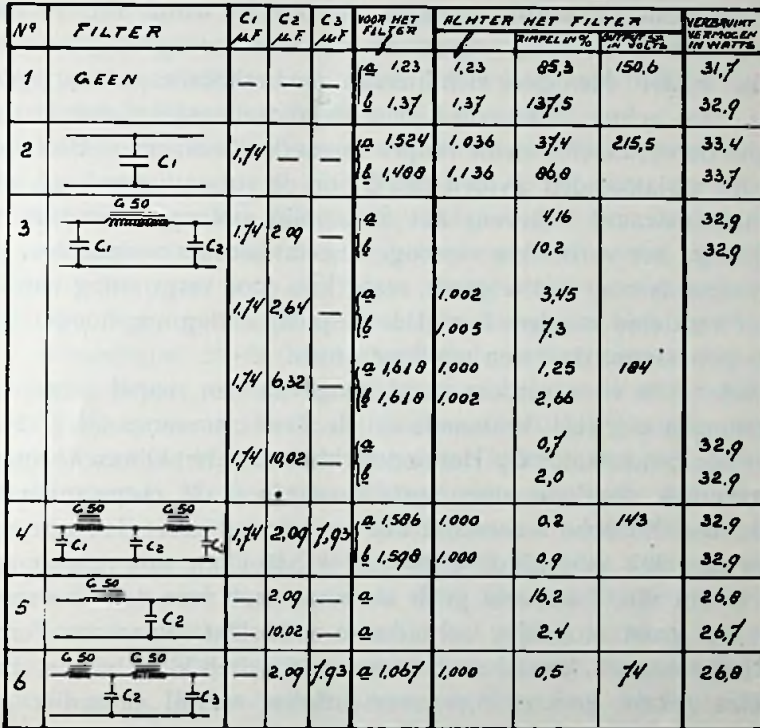 Nº FILTER C1 µ.F C2 µ.F C3 µ.F VOOR HET FILTER ACHTER HET FILTER VERBRUIKT VERMOGEN IN WATTS
RIMPEL IN % OUTPUT IN VOLTS
1 GEEN — — — a 1.23 1.23 85,3 150,6 31,7
b 1.37 1.37 137.5 32.9
2 C1 1,74 — — a 1.524 1.036 37.4 215,5 33.4
b 1.488 1.136 86,8 33,7
G 50
3 C1 C2 1,74 2.09 — a 4,16 32,9
b 10,2 32,9
1,74 2,64 — a 1.002 3,45
b 1.005 7,3
1,74 6,32 — a 1,618 1.000 1,25 184
b 1,618 1.002 2.66
1,74 10,02 — a 0,7 32.9
b 2,0 32.9
G 50 G 50
4 C1 C2 1,74 2,09 7,93 a 1,586 1.000 0,2 143 32.9
b 1,598 1.000 0,9 32.9
G 50
5 C2 — 2.09 — a 16,2 26,8
— 10.02 — a 2,4 26,7
G 50 G 50
6 C2 C3 — 2.09 7.93 a 1,067 1,000 0,5 74 26,8